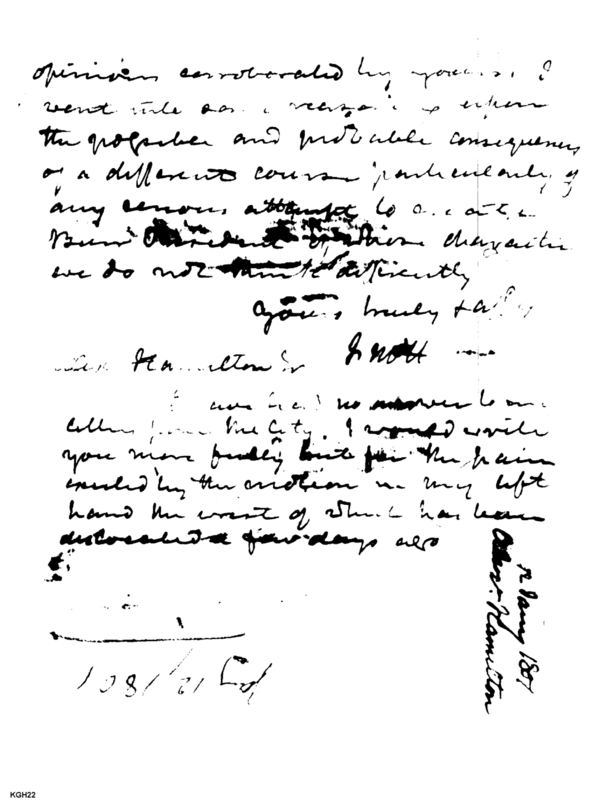 opinions corroborated by yours. I
went into some reasoning upon
the possible and probable consequences
of a different course particularly of
any serious attempt to
Burr President of whose character
we do not think differently
Yours truly &
Hamilton
I have had no answer to
letters from the City. I would write
you more fully but for the pain
excited by the motion in my left
hand the wrist of which has been
dislocated a few days ago
12 Jany 1801
Alexr. Hamilton
Jany 12/1801
KGH22